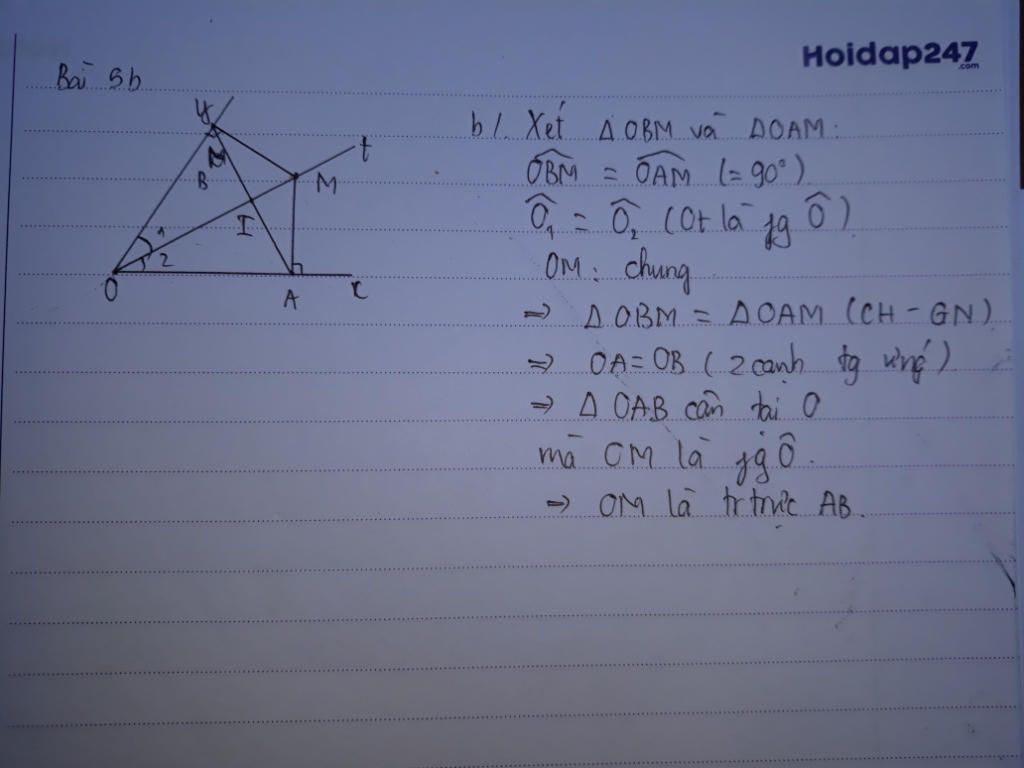 Hoidap247
.com
Bài 5b
y
t
B
M
I
1
2
O
A
x
b/. Xét △OBM và △OAM:
OBM̂ = OAM̂ (= 90°)
Ô₁ = Ô₂ (Ot là fg Ô)
OM: chung
=> △OBM = △OAM (CH - GN)
=> OA = OB (2 cạnh tg ứng)
=> △OAB cân tại O
mà OM là fg Ô.
=> OM là tr trực AB.